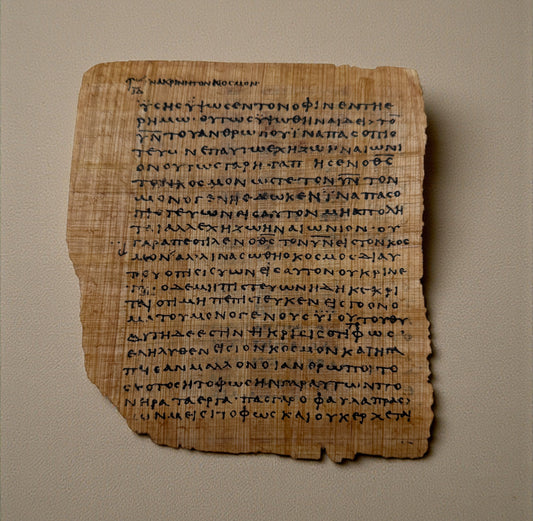 ΝΑΚΡΙΝΗΤΟΝΚΟΣΜΟΝ·
ΫΣΗΣΫΨΩΣΕΝΤΟΝΟΦΙΝΕΝΤΗΕ
ΡΗΜΩ·ΟΥΤΩΣΫΨΩΘΗΝΑΙΔΕΙ·ΤΟ
Υ̅Ν̅ΤΟΥΑΝΘΡΩΠΟΥΪΝΑΠΑΣΟΠΙΣ
ΤΕΥΩΝΕΠΑΥΤΩΕΧΗΖΩΗΝΑΙΩΝΙ
ΟΝΟΥΤΩΣΓΑΡΗ·ΓΑΠ ΗΣΕΝΟΘ̅Σ̅
ΤΟΝΚΟΣΜΟΝΩΣΤΕ·ΤΟΝΥ̅Ν̅ΤΟΝ
ΜΟΝΟΓΕΝΗΕΔΩΚΕΝΪΝΑΠΑΣΟ
ΠΙΣΤΕΥΩΝΕΙΣΑΥΤΟΝΜΗΑΠΟΛΗ
ΤΑΙΑΛΛΕΧΗΖΩΗΝΑΙΩΝΙΟΝ·ΟΥ
ΓΑΡΑΠΕΣΤΙΛΕΝΟΘ̅Σ̅ΤΟΝΥ̅Ν̅ΕΙΣΤΟΝΚΟΣ
ΜΟΝΑΛΛΙΝΑΣΩΘΗΟΚΟΣΜΟΣΔΙΑΥ
ΤΟΥΟΠΙΣΤΕΥΩΝΕΙΣΑΥΤΟΝΟΥΚΡΙΝΕ
ΟΔΕΜΗΠΙΣΤΕΥΩΝΗΔΗΚΕΚΡΙ
ΤΑΙΟΤΙΜΗΠΕΠΙΣΤΕΥΚΕΝΕΙΣΤΟΟΝΟ
ΜΑΤΟΥΜΟΝΟΓΕΝΟΥΣΫΪΟΥΤΟΥΘΥ·
ΑΥΤΗΔΕΕΣΤΙΝΗΚΡΙΣΙΣΟΤΙΤΟΦΩΣ·
ΕΛΗΛΥΘΕΝΕΙΣΤΟΝΚΟΣΜΟΝΚΑΙΗΓΑ
ΠΗΣΑΝΜΑΛΛΟΝΟΙΑΝΘΡΩΠΟΙ·ΤΟ
ΣΚΟΤΟΣΗΤΟΦΩΣΗΝΓΑΡΑΥΤΩΝΠΟ
ΝΗΡΑΤΑΕΡΓΑ·ΠΑΣΓΑΡΟΦΑΥΛΑΠΡΑΣ
ΩΝΜΕΙΣΕΙΤΟΦΩΣΚΑΙΟΥΚΕΡΧΕΤΑΙ